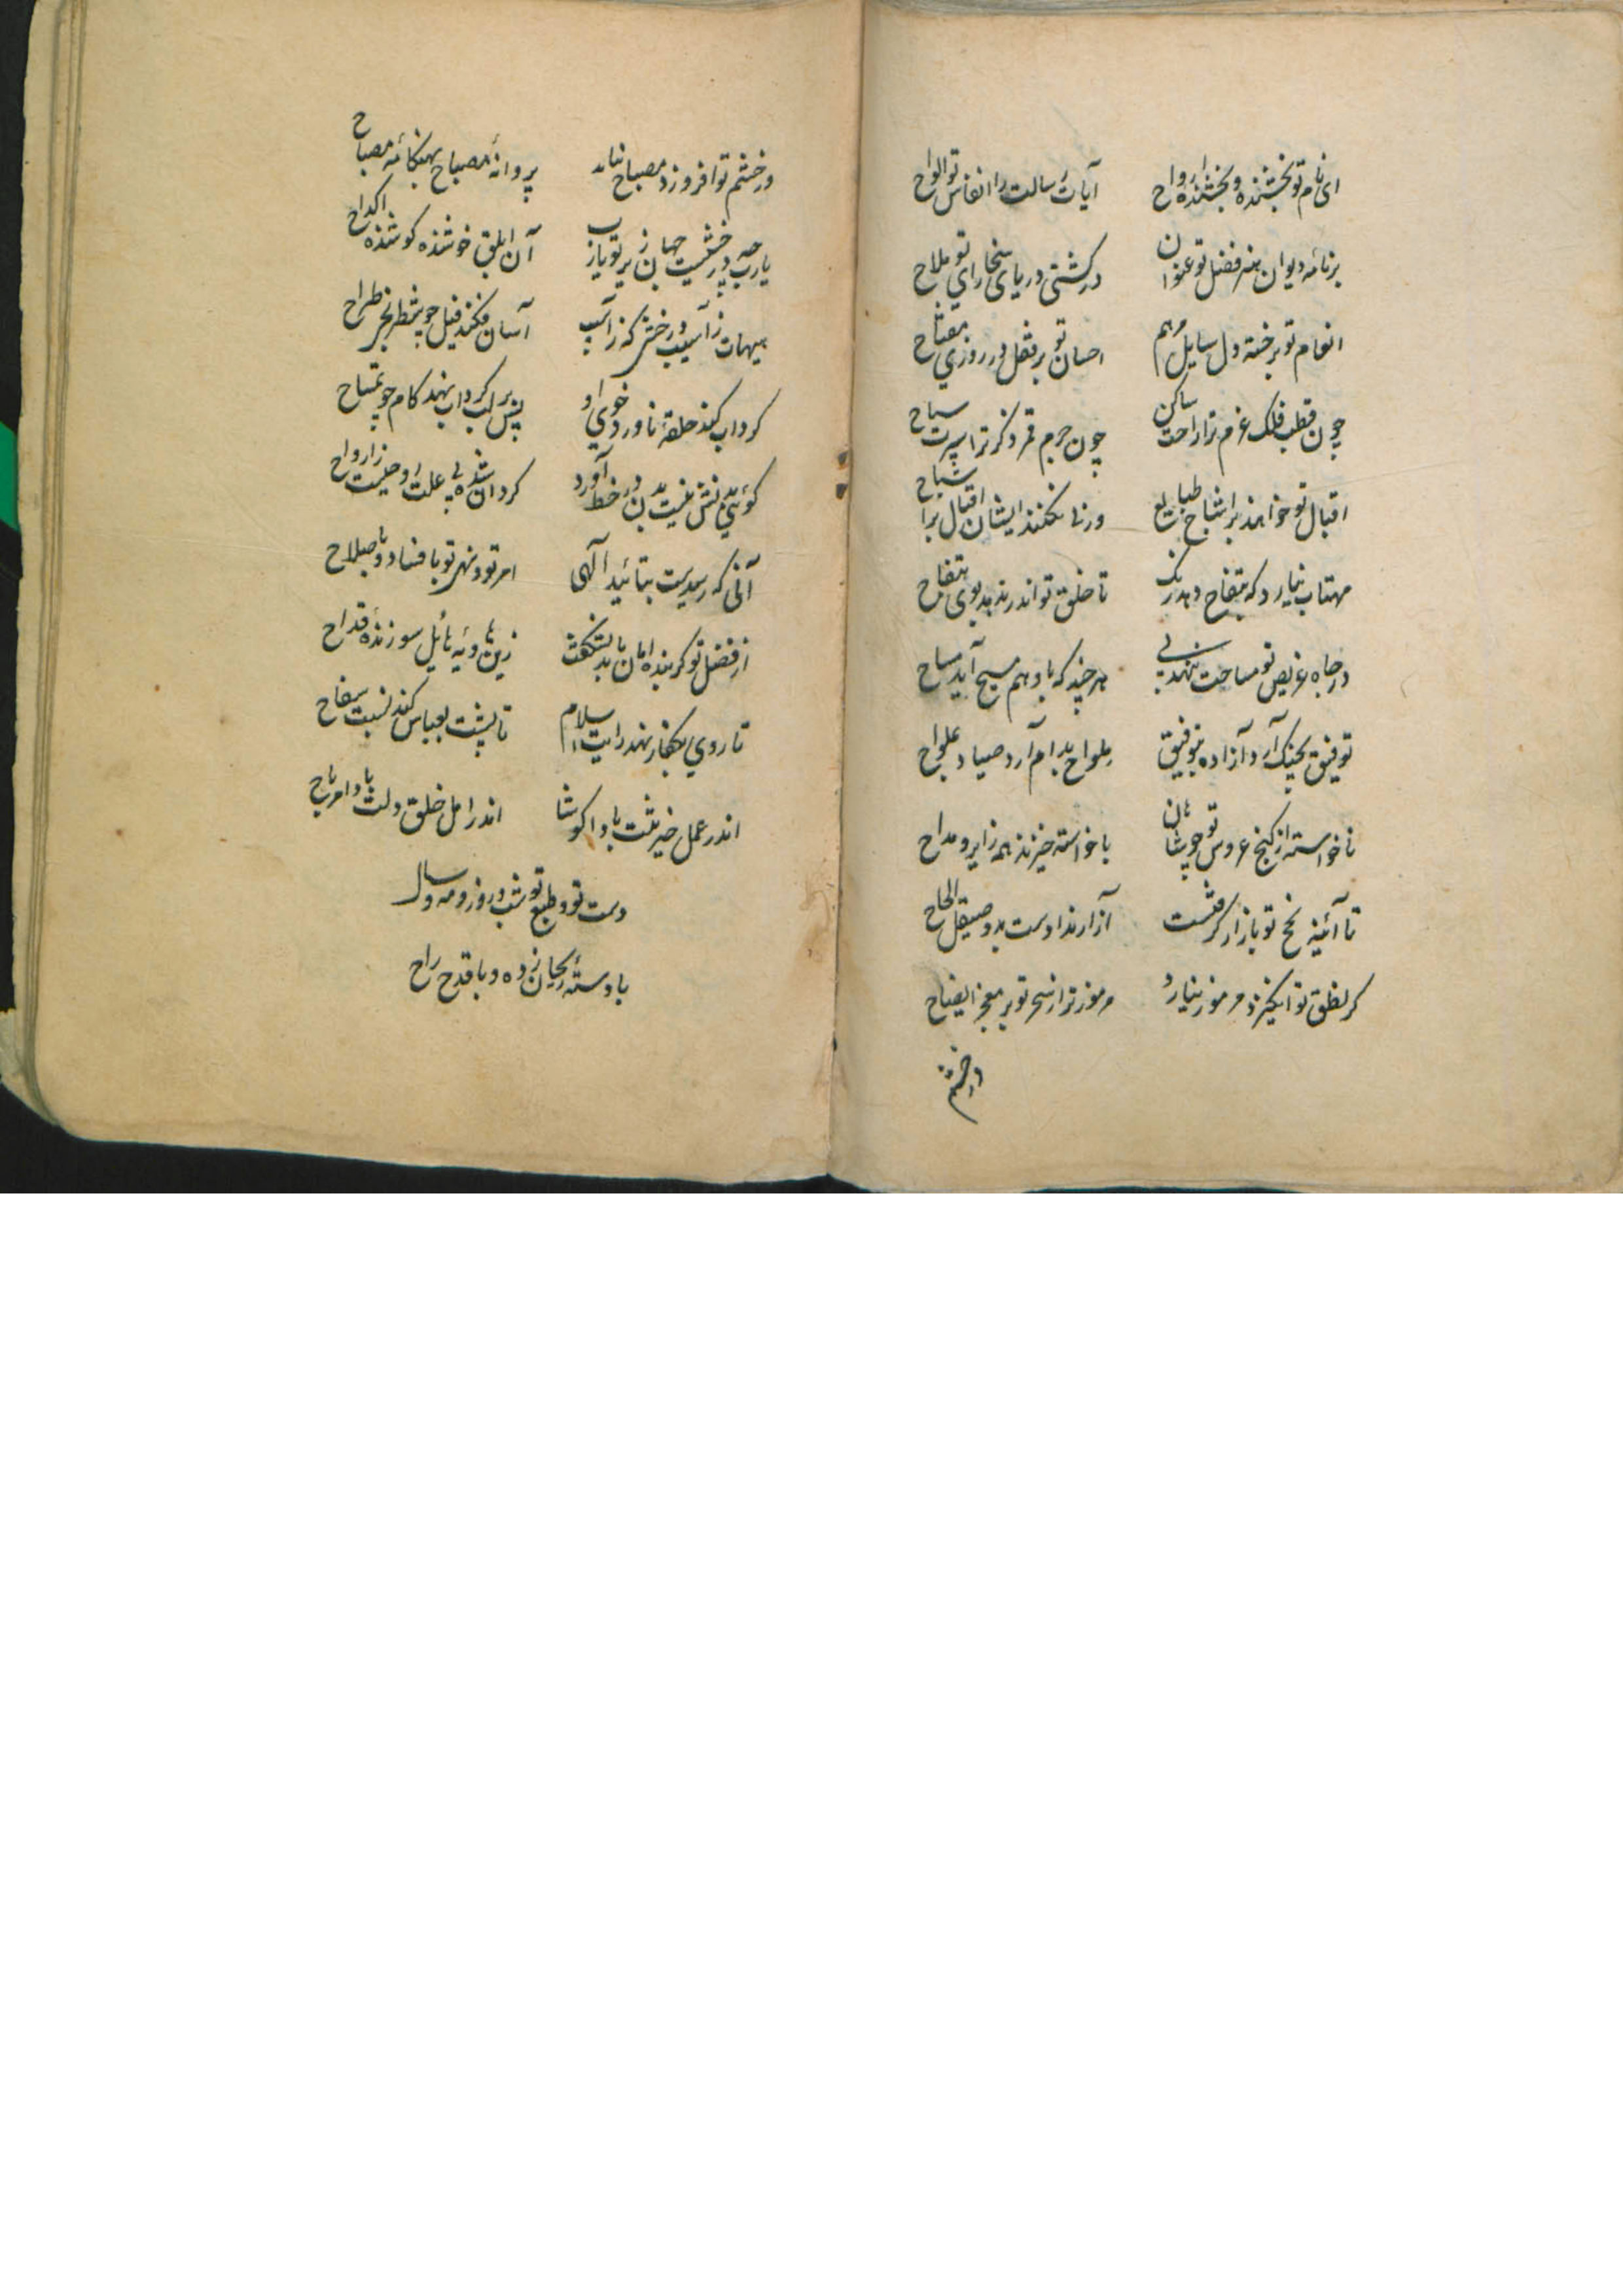 ای نام تو بخشنده و بخشنده ارواح آیات رسالت را انفاس تو الواح
بر نامه دیوان هنر فضل تو عنوان در کشتی دریای سخا رای تو ملاح
انعام تو بر خسته دل سایل مرهم احسان تو بر قفل در روزی مفتاح
چون قطب فلک عزم ترا راحت ساکن چون جرم قمر ذکر ترا سیرت سیاح
اقبال تو خوانند بر اشباح طبایع ورنی نکنند ایشان اقبال بر اشباح
مهتاب نیارد که بتفاح دهد رنک تا خلق تو اندر ندمد بوی بتفاح
در جاه عریض تو مساحت ننهد پی هر چند که با وهم مسیح آید مساح
توفیق بچنک آرد آزاده بتوفیق ملواح بدام آرد صیاد بملواح
ناخواسته از کنج عروس تو چو پنهان باخواسته خیزند همه زایر و مداح
تا آئینه نجح تو بازار کرفتست آزار ندادست بدو صیقل الحاح
کر نطق تو انکیزد مرموز نیارد مرموز ترا از سحر تو بر معجز ایضاح
ور خشم
ور خشم تو افروزد مصباح نیاید پروانه مصباح بهنکامه مصباح
یا رب چه درخشیست جهان زیر تو یا رب آن ابلق خوشنده کوشنده اکداح
هیهات ز آسیب درختی که ز آسیب آسان فکند فیل چو شطرنجی طراح
کرداب کند حلقه ناورد خوی او پس بر لب کرداب نهد کام چو تمساح
کوئی تنش نیست بدن در خط آورد کردان شده بی علت او جیست ز ارواح
آنی که رسیدست بتائید آلهی امر تو و نهی تو بافساد و باصلاح
از فضل تو کر بنده امان یابد نشکفت زین هاویه هایل سوزنده قداح
تا روی بکفار نهد رایت اسلام تا پشت بعباس کند نسبت سفاح
اندر عمل خیر نیت بادا کوشا اندر امل خلق دلت بادا مرتاح
دست تو و طبع تو شب و روز و مه و سال
با دسته ریحان زده و با قدح راح